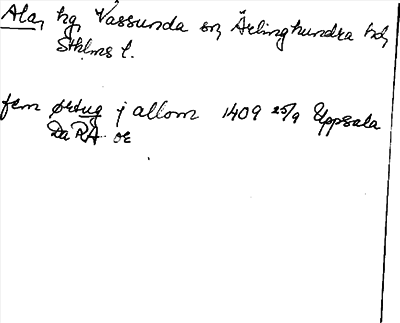 Ala, hg, Vassunda sn, Ärlinghundra hd,
Sthlms l.
fem ørtug j allom 1409 25/9 Uppsala
Da RA oe